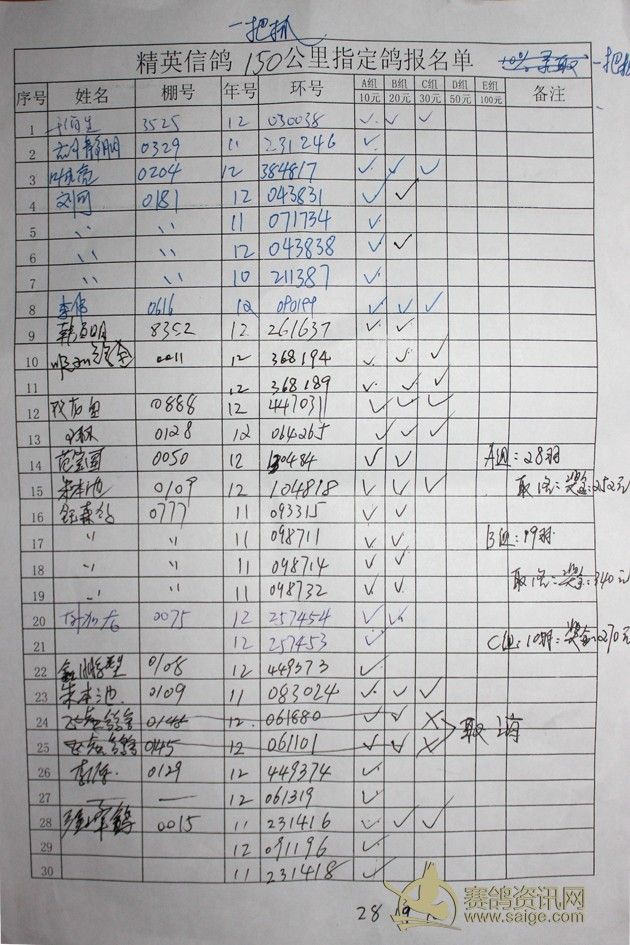 一把抓
精英信鸽 150公里指定鸽报名单 10%录取 一把抓
序号 姓名 棚号 年号 环号 A组10元 B组20元 C组30元 D组50元 E组100元 备注
1 3525 12 030038 ✓ ✓ ✓
2 0329 11 231246 ✓
3 0204 12 384817 ✓ ✓ ✓
4 刘 0181 12 043831 ✓ ✓
5 〃 〃 11 071734 ✓
6 〃 〃 12 043838 ✓ ✓
7 〃 〃 10 211387 ✓
8 李伟 0616 12 090199 ✓ ✓ ✓
9 韩 8352 12 261637 ✓ ✓
10 0011 12 368194 ✓ ✓ ✓
11 12 368189 ✓ ✓ ✓
12 0888 12 447031 ✓ ✓ ✓
13 0128 12 064265 ✓ ✓ ✓
14 范宝国 0050 12 130484 ✓ ✓ A组:28羽
15 朱本池 0109 12 104818 ✓ ✓ ✓ 取1名:奖金:252元
16 0777 11 093315 ✓ ✓
17 〃 〃 11 098711 ✓ ✓ B组:19羽
18 〃 〃 11 098714 ✓ ✓ 取1名:奖金:340元
19 〃 〃 11 098732 ✓ ✓
20 0075 12 257454 ✓ ✓
21 12 257453 ✓ C组:10羽:奖金:270元
22 0108 12 449373 ✓
23 朱本池 0109 11 083024 ✓ ✓ ✓
24 0145 12 061680 ✓ ✓ ✗ 取消
25 0145 12 061101 ✓ ✓ ✗
26 李伟 0129 12 449374 ✓
27 — — 12 061319 ✓
28 0015 11 231416 ✓ ✓ ✓
29 12 091196 ✓
30 11 231418 ✓
28 19
赛鸽资讯网
www.saige.com